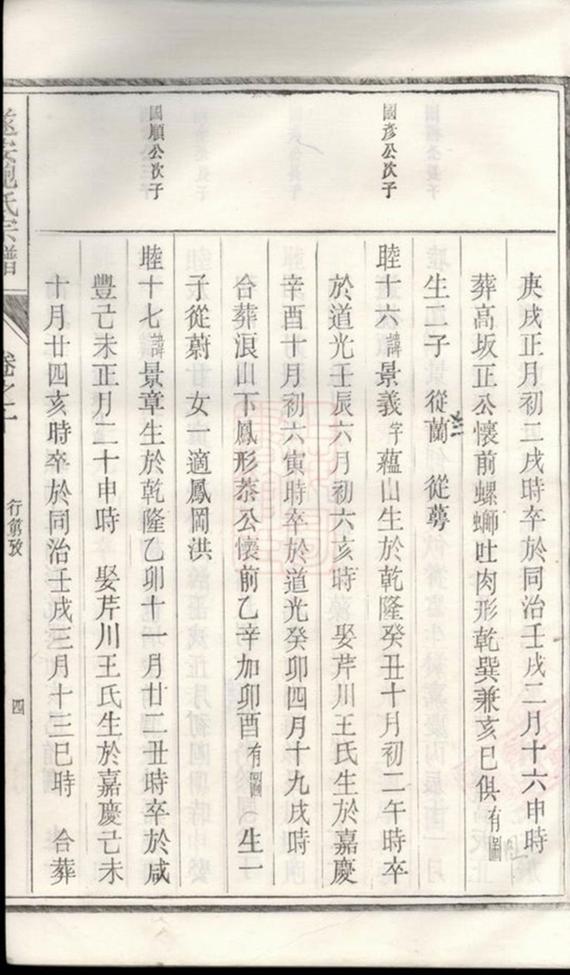 庚戌正月初二戌時卒於同治壬戌二月十六申時
葬高坂正公懷前螺螄吐肉形乾巽兼亥巳俱有圖
生二子 從蘭 從蕚
國彥公次子
睦十六諱景義字蘊山生於乾隆癸丑十月初二午時卒
於道光壬辰六月初六亥時 娶芹川王氏生於嘉慶
辛酉十月初六寅時卒於道光癸卯四月十九戌時
合葬浪山下鳳形恭公懷前乙辛加卯酉有圖 生一
子從蔚 女一適鳳岡洪
國順公次子
睦十七諱景章生於乾隆乙卯十一月廿二丑時卒於咸
豐己未正月二十申時 娶芹川王氏生於嘉慶己未
十月廿四亥時卒於同治壬戌三月十三巳時 合葬
遂安鮑氏宗譜
卷之
行第攷
四